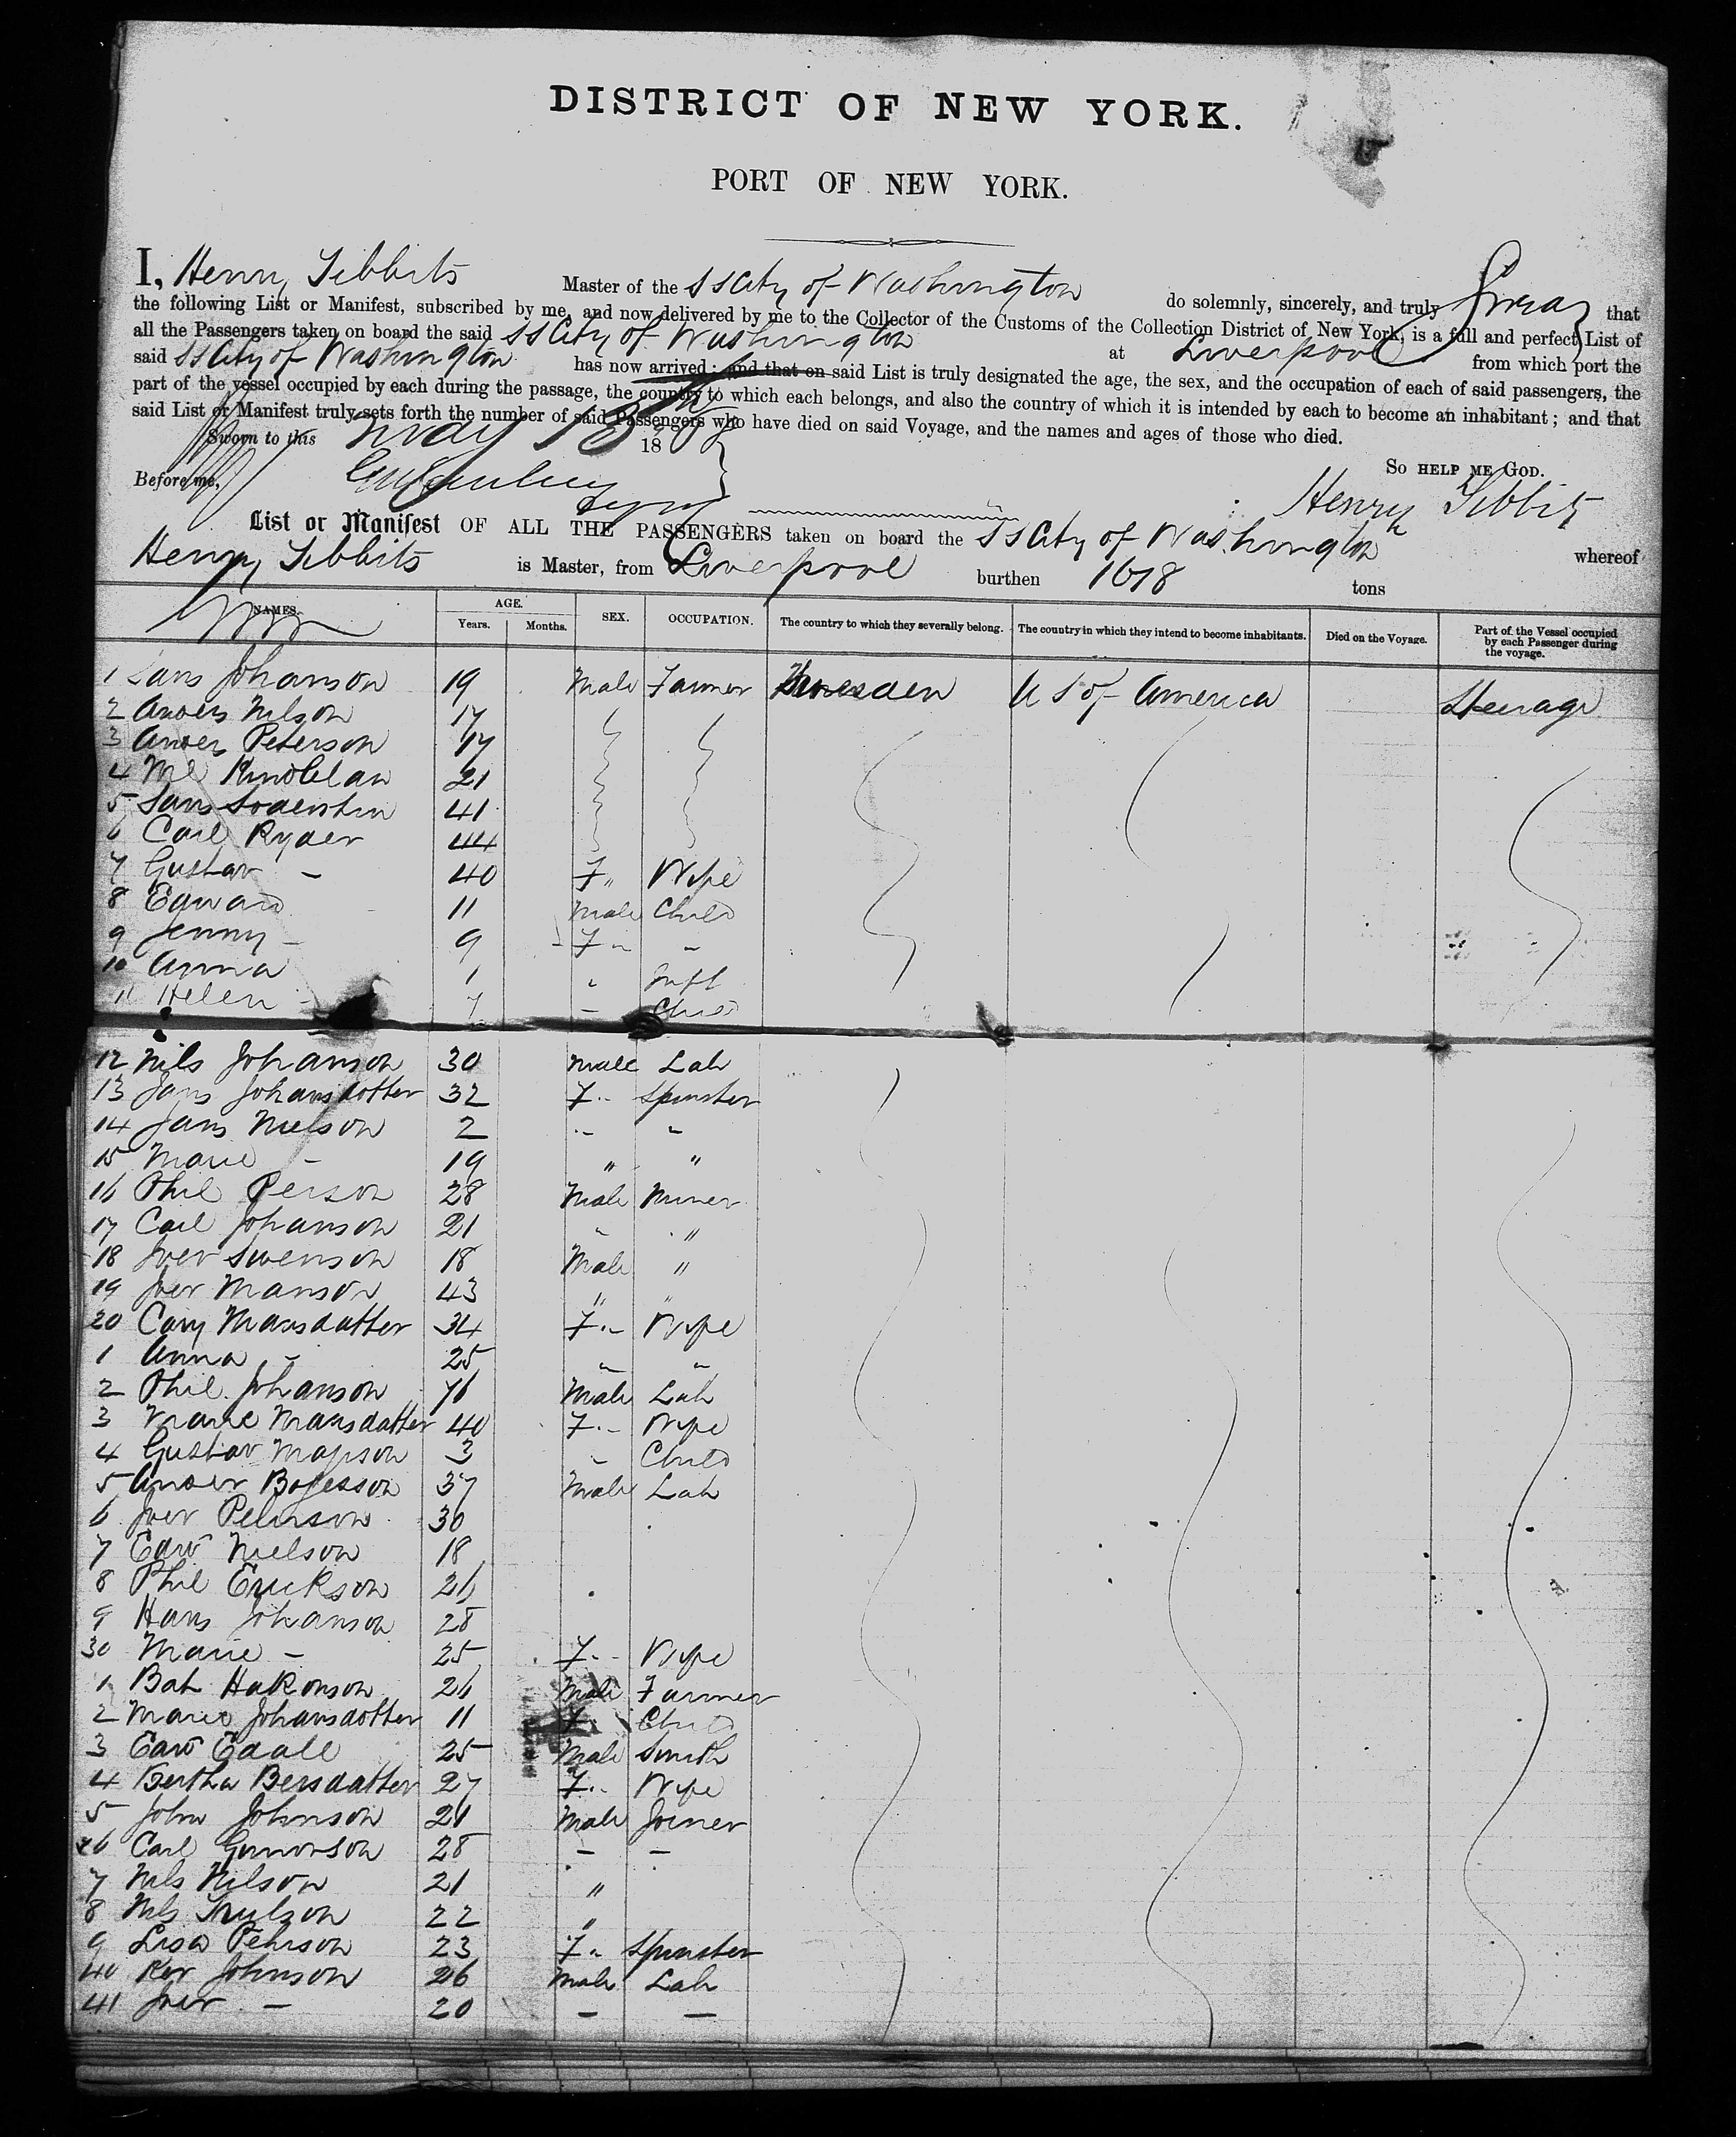 DISTRICT OF NEW YORK.
PORT OF NEW YORK.
I, Henry Tibbits Master of the SS City of Washington do solemnly, sincerely, and truly Swear that
the following List or Manifest, subscribed by me, and now delivered by me to the Collector of the Customs of the Collection District of New York, is a full and perfect List of
all the Passengers taken on board the said SS City of Washington at Liverpool from which port the
said SS City of Washington has now arrived; and that on said List is truly designated the age, the sex, and the occupation of each of said passengers, the
part of the vessel occupied by each during the passage, the country to which each belongs, and also the country of which it is intended by each to become an inhabitant; and that
said List or Manifest truly sets forth the number of said Passengers who have died on said Voyage, and the names and ages of those who died.
Sworn to this May 13 18
So help me God.
Before me,
Henry Tibbits
List or Manifest OF ALL THE PASSENGERS taken on board the SS City of Washington whereof
Henry Tibbits is Master, from Liverpool burthen 1678 tons
NAMES. AGE. Years. Months. SEX. OCCUPATION. The country to which they severally belong. The country in which they intend to become inhabitants. Died on the Voyage. Part of the Vessel occupied by each Passenger during the voyage.
1 Lars Johanson 19 Male Farmer Sweden U S of America Steerage
2 Anders Nilson 17
3 Anders Peterson 17
4 21
5 Lars 41
6 Carl Ryder 44
7 Gustav - 40 F " Wife
8 Edward 11 Male Child
9 Jenny - 9 F " "
10 Anna 1 " Inft
11 Helen - 7 - Child
12 Nils Johanson 30 Male Lab
13 Jans Johansdotter 32 F " Spinster
14 Jans Nielson 2 " "
15 Marie - 19 " "
16 Phil Person 28 Male Miner
17 Carl Johanson 21 " "
18 Iver Swenson 18 Male "
19 Iver Manson 43 " "
20 Cary Mansdatter 34 F " Wife
1 Anna - 25 " "
2 Phil Johanson 76 Male Lab
3 Marie Mansdatter 40 F " Wife
4 Gustav 3 " Child
5 Ander 37 Male Lab
6 Iver Pehrson 30
7 Edw Nielson 18
8 Phil Erickson 26
9 Hans Johanson 28
30 Marie - 25 F " Wife
1 Bat Hakonson 26 Male Farmer
2 Marie Johansdotter 11 F Child
3 Edw Edall 25 Male Smith
4 Bertha Bersdatter 27 F " Wife
5 John Johnson 21 Male Joiner
6 Carl Gunnorson 28 - -
7 Nils Nilson 21 "
8 Nils Trulson 22 "
9 Lisa Pehrson 23 F " Spinster
40 Per Johnson 26 Male Lab
41 Iver - 20 - -